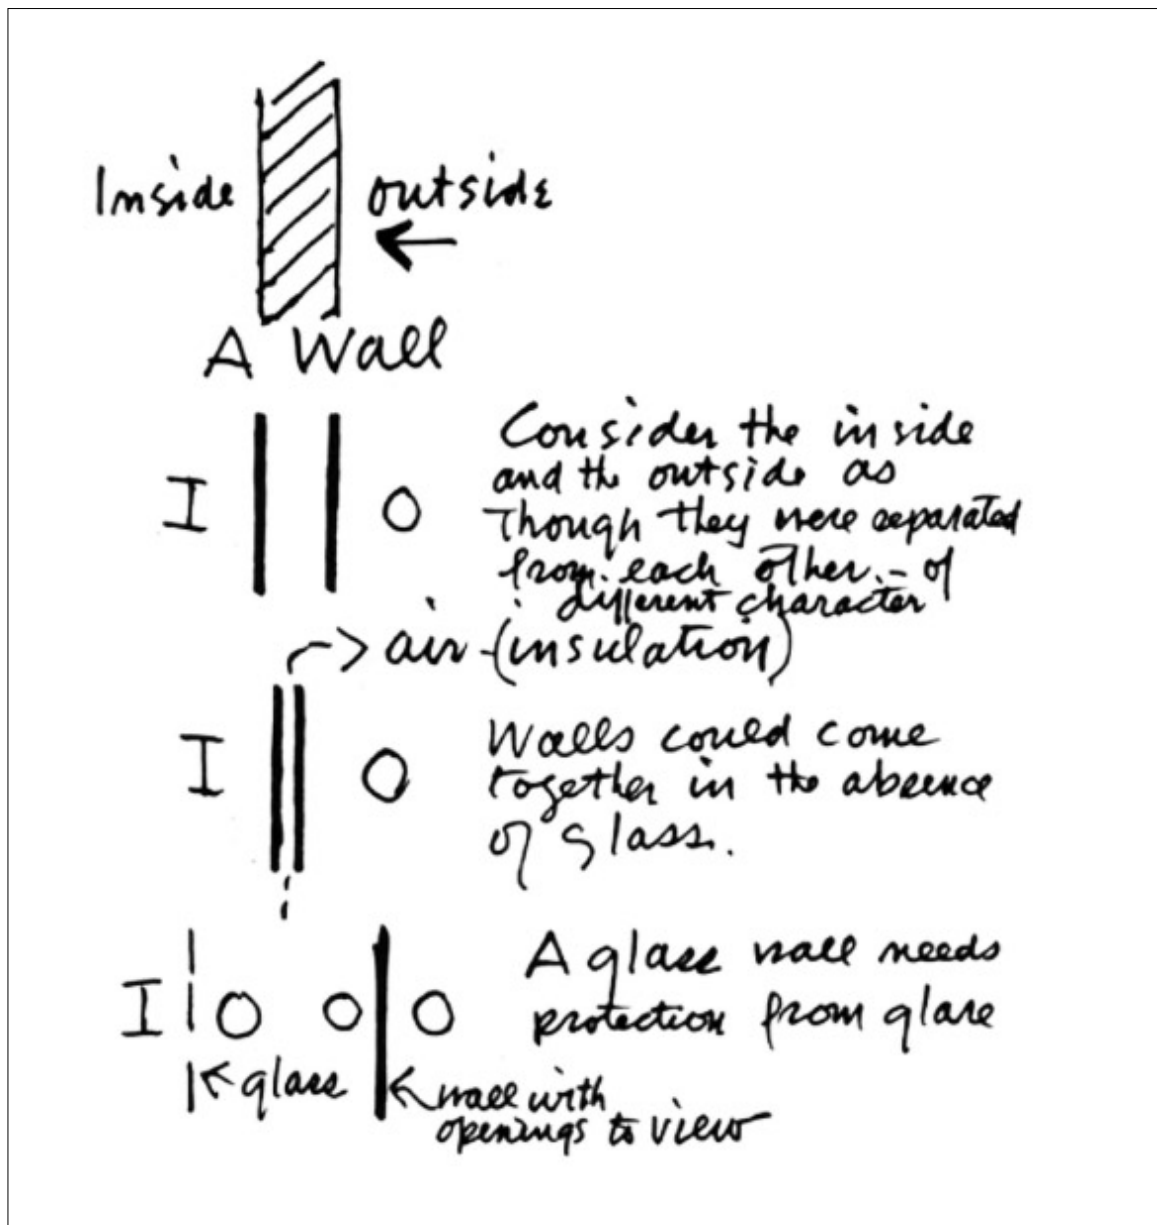 Inside outside
A Wall
I O Consider the inside
and the outside as
though they were separated
from each other. - of
different character
air - (insulation)
I O Walls could come
together in the absence
of glass.
I O O O A glass wall needs
protection from glare
glass
wall with
openings to view